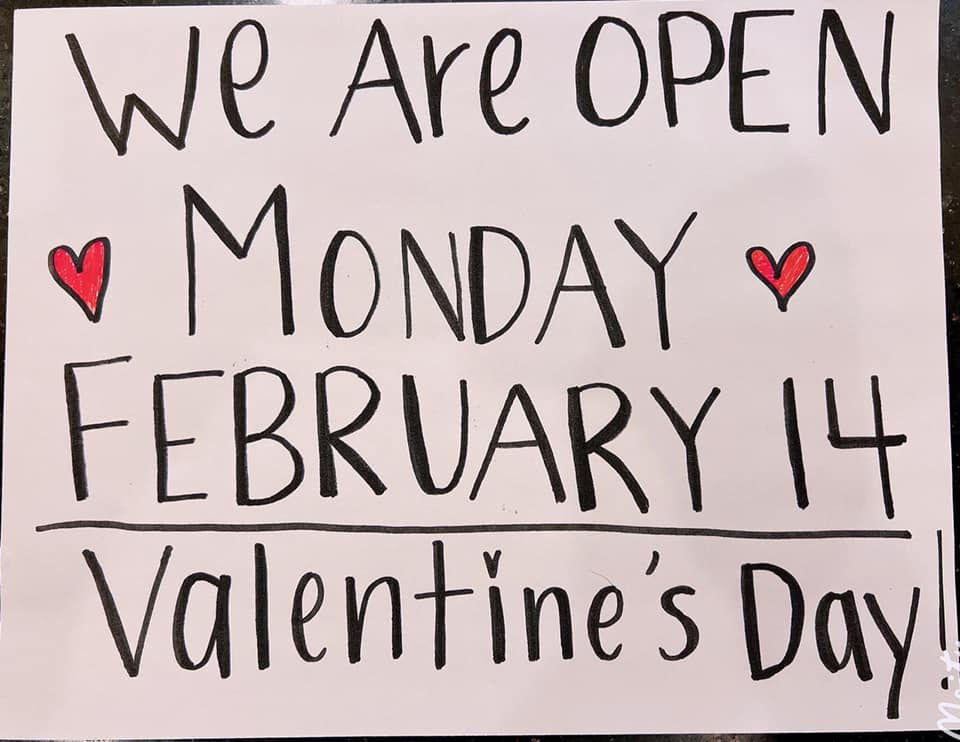 We Are OPEN
MONDAY
FEBRUARY 14
Valentine's Day!